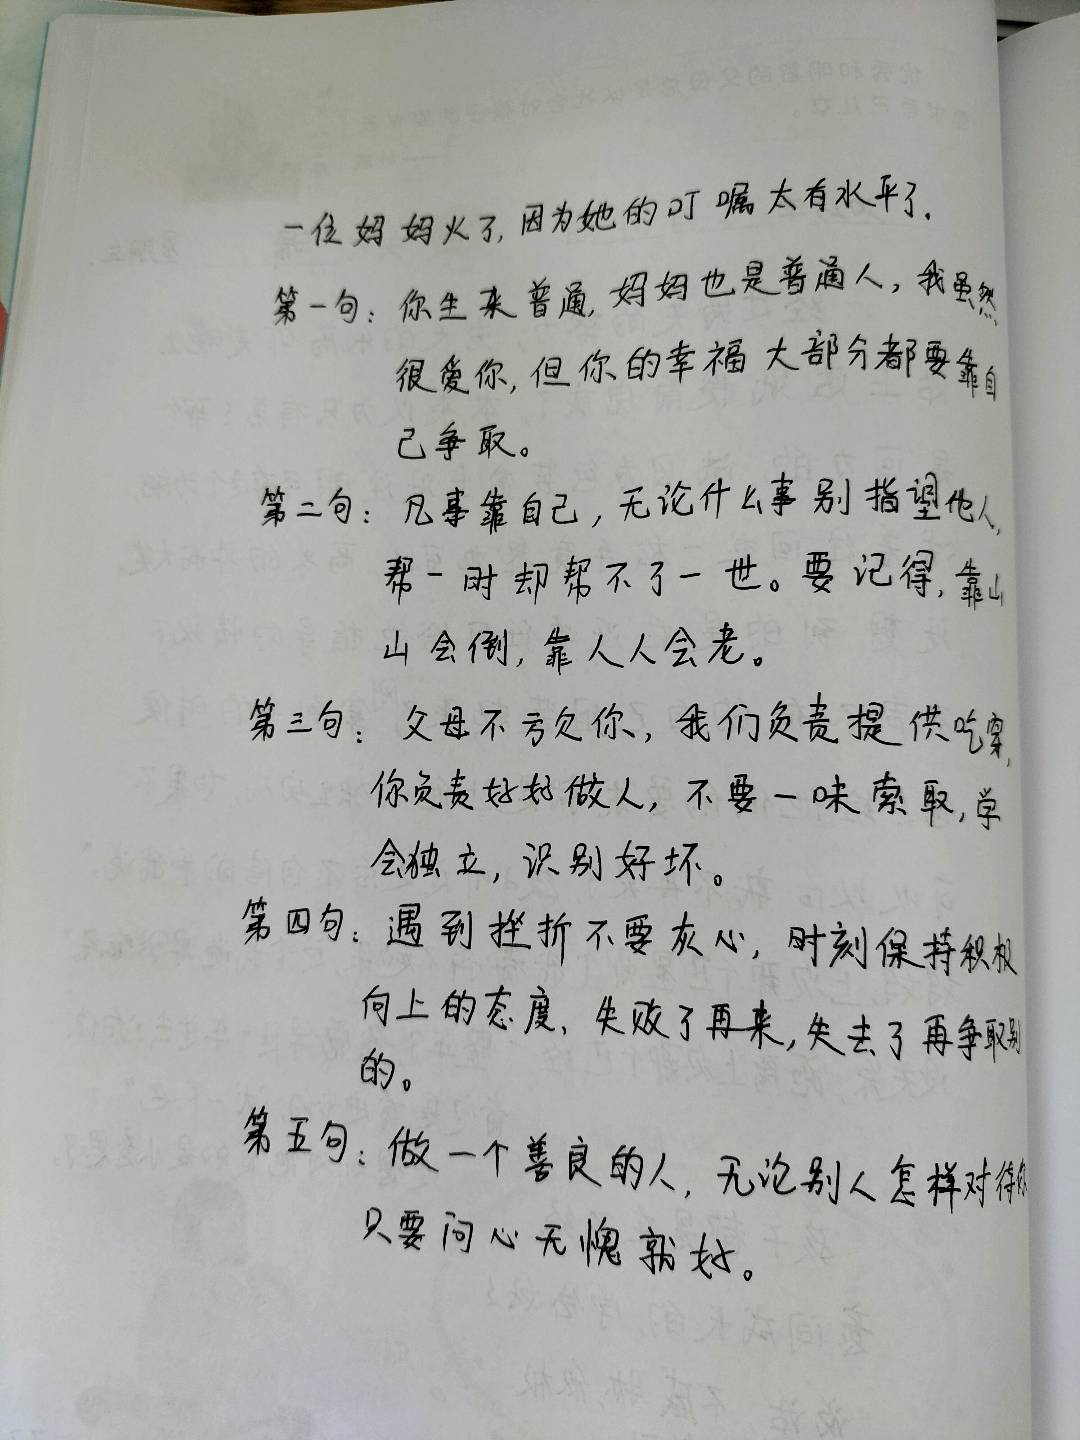 一位妈妈火了,因为她的叮嘱太有水平了.
第一句：你生来普通,妈妈也是普通人,我虽然
很爱你,但你的幸福大部分都要靠自
己争取。
第二句：凡事靠自己,无论什么事别指望他人,
帮一时却帮不了一世。要记得,靠山
山会倒,靠人人会老。
第三句：父母不亏欠你,我们负责提供吃穿,
你负责好好做人,不要一味索取,学
会独立,识别好坏。
第四句：遇到挫折不要灰心,时刻保持积极
向上的态度、失败了再来,失去了再争取别
的。
第五句：做一个善良的人,无论别人怎样对待你
只要问心无愧就好。